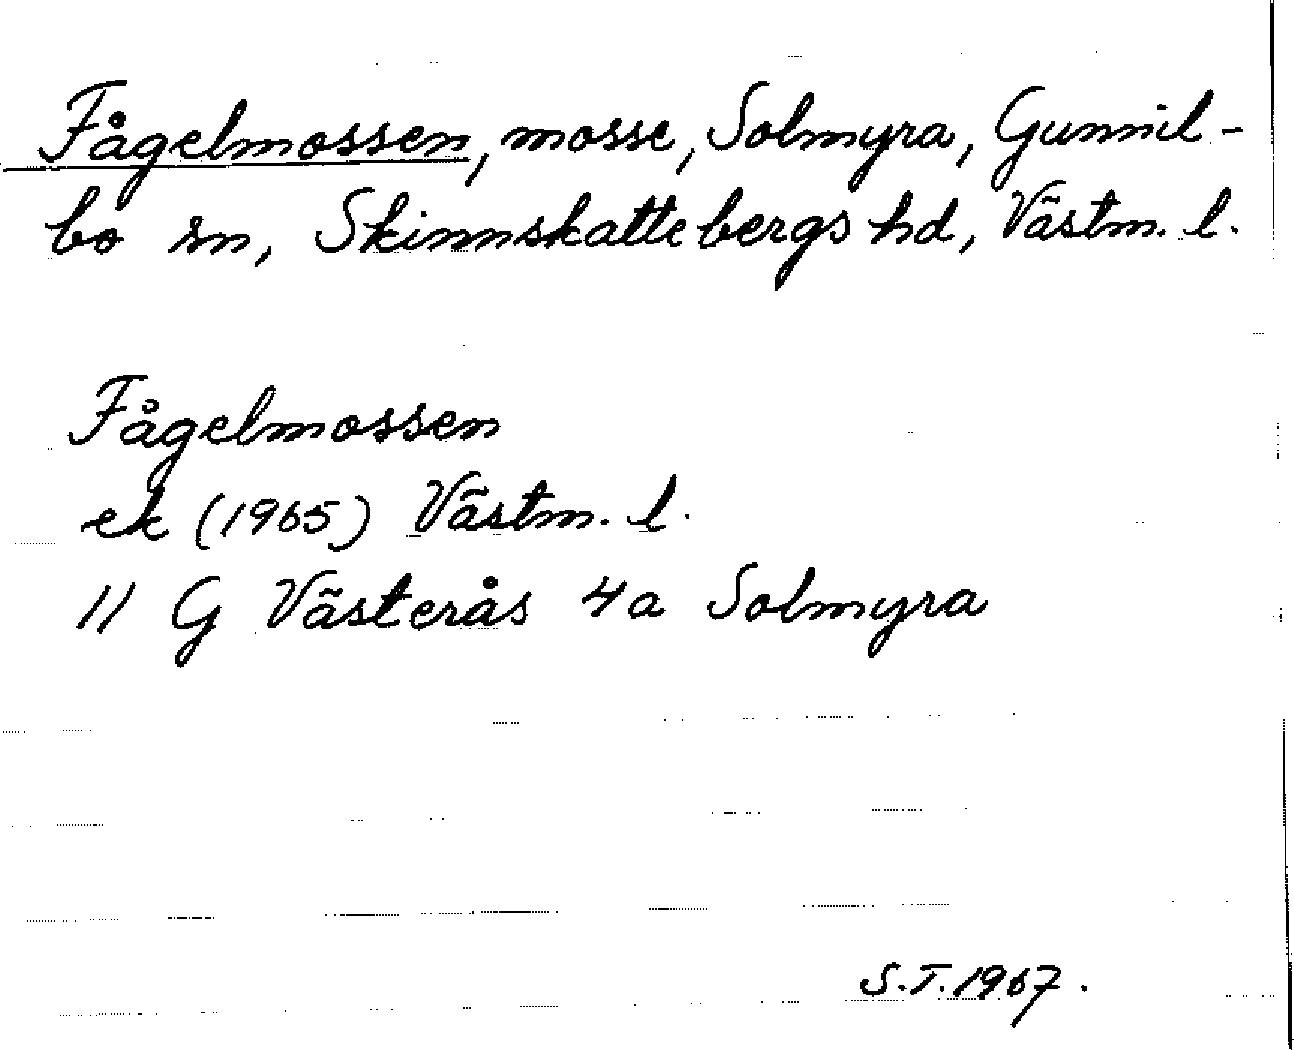 Fågelmossen, mosse, Solmyra, Gunnil-
bo sn, Skinnskattebergs hd, Västm. l.
Fågelmossen
ek (1965) Västm. l.
11 G Västerås 4a Solmyra
S.T. 1967.